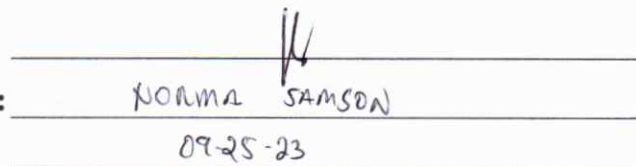 :
NORMA SAMSON
09-25-23